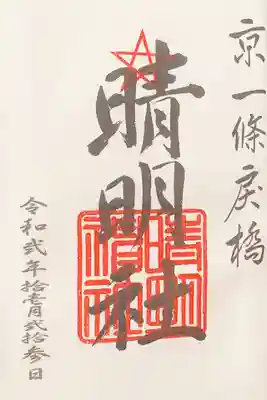 京一條戻橋
晴明社
晴明神社
令和弐年拾壱月弐拾参日